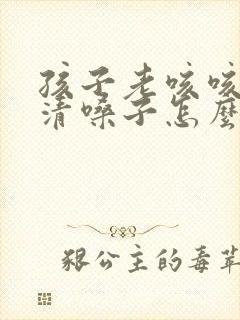 孩子老咳咳
清嗓子怎麼
狠公主的毒苹